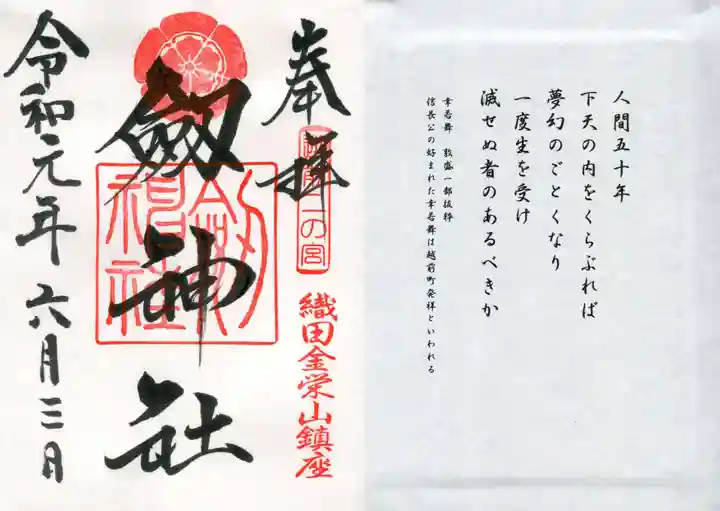 奉拝
越前二の宮
織田金栄山鎮座
劔神社
劔神社
令和元年六月三日
人間五十年
下天の内をくらぶれば
夢幻のごとくなり
一度生を受け
滅せぬ者のあるべきか
幸若舞 敦盛一部抜粋
信長公の好まれた幸若舞は越前町発祥といわれる